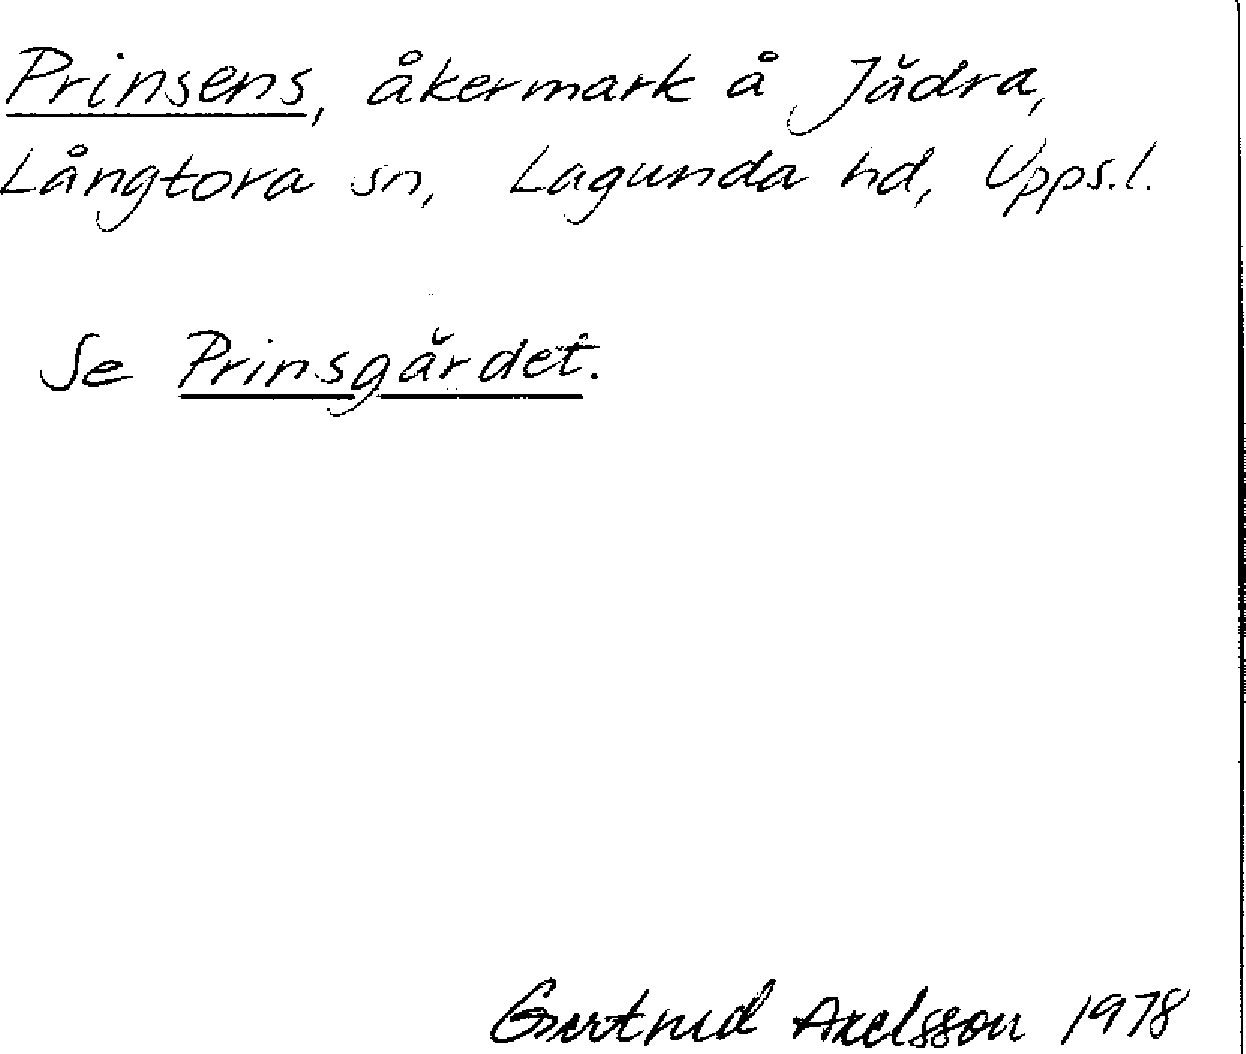 Prinsens, åkermark å Jädra,
Långtora sn, Lagunda hd, Upps.l.
Se Prinsgärdet.
Gertrud Axelsson 1978